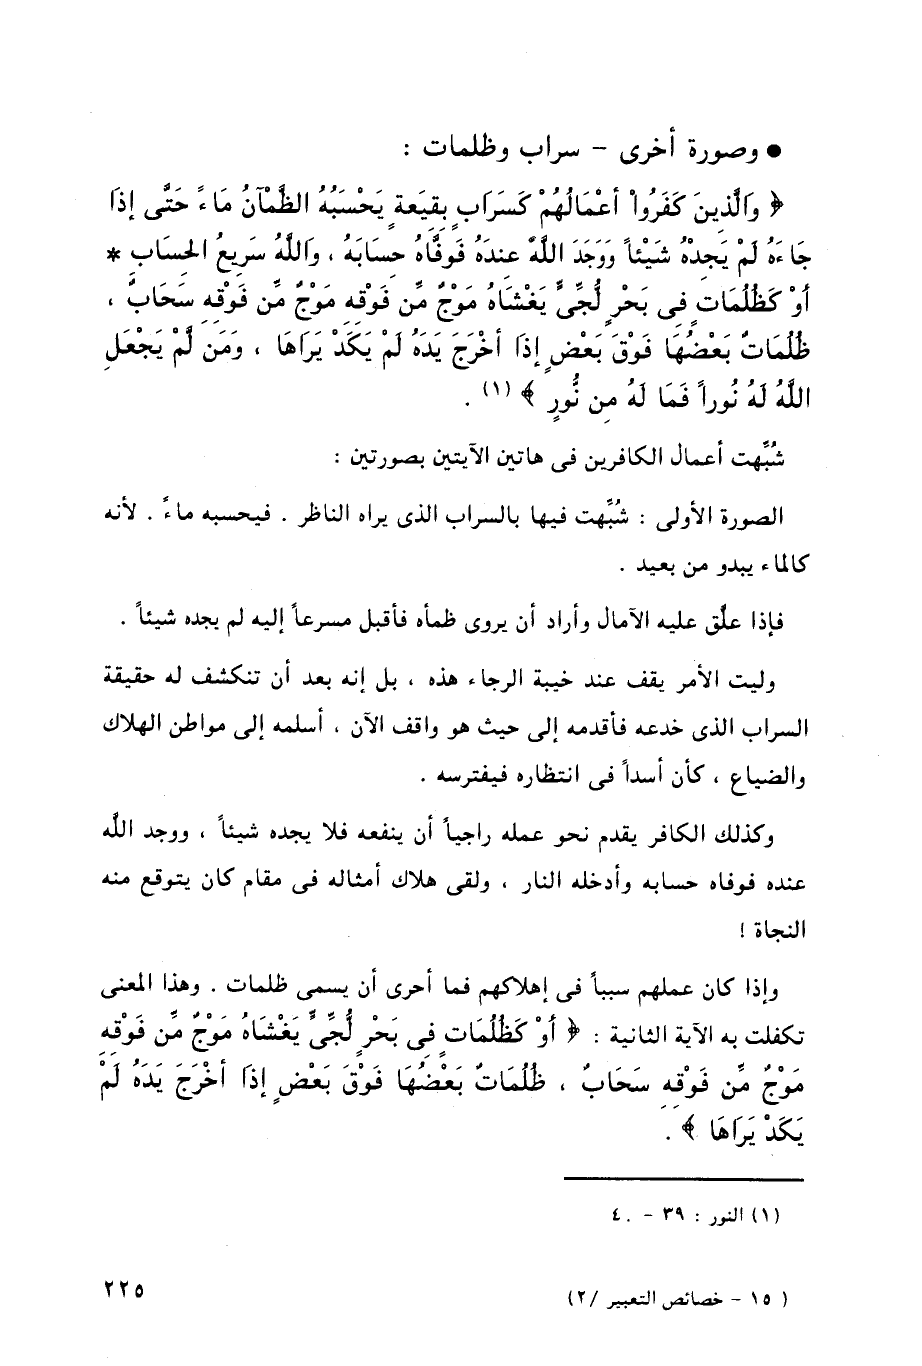 ● وصورة أخرى – سراب وظلمات :
﴿ وَالَّذِينَ كَفَرُواْ أَعْمَالُهُمْ كَسَرَابٍ بِقِيعَةٍ يَحْسَبُهُ الظَّمْآنُ مَاءً حَتَّى إِذَا
جَاءَهُ لَمْ يَجِدْهُ شَيْئاً وَوَجَدَ اللَّهَ عِندَهُ فَوَفَّاهُ حِسَابَهُ ، وَاللَّهُ سَرِيعُ الْحِسَابِ *
أَوْ كَظُلُمَاتٍ فِى بَحْرٍ لُّجِّىٍّ يَغْشَاهُ مَوْجٌ مِّن فَوْقِهِ مَوْجٌ مِّن فَوْقِهِ سَحَابٌ ،
ظُلُمَاتٌ بَعْضُهَا فَوْقَ بَعْضٍ إِذَا أَخْرَجَ يَدَهُ لَمْ يَكَدْ يَرَاهَا ، وَمَن لَّمْ يَجْعَلِ
اللَّهُ لَهُ نُوراً فَمَا لَهُ مِن نُّورٍ ﴾ (١) .
شُبِّهت أعمال الكافرين فى هاتين الآيتين بصورتين :
الصورة الأولى : شُبِّهت فيها بالسراب الذى يراه الناظر . فيحسبه ماءً . لأنه
كالماء يبدو من بعيد .
فإذا علَّق عليه الآمال وأراد أن يروى ظمأه فأقبل مسرعاً إليه لم يجده شيئاً .
وليت الأمر يقف عند خيبة الرجاء هذه ، بل إنه بعد أن تنكشف له حقيقة
السراب الذى خدعه فأقدمه إلى حيث هو واقف الآن ، أسلمه إلى مواطن الهلاك
والضياع ، كأن أسداً فى انتظاره فيفترسه .
وكذلك الكافر يقدم نحو عمله راجياً أن ينفعه فلا يجده شيئاً ، ووجد اللَّه
عنده فوفاه حسابه وأدخله النار ، ولقى هلاك أمثاله فى مقام كان يتوقع منه
النجاة !
وإذا كان عملهم سبباً فى إهلاكهم فما أحرى أن يسمى ظلمات . وهذا المعنى
تكفلت به الآية الثانية : ﴿ أَوْ كَظُلُمَاتٍ فِى بَحْرٍ لُّجِّىٍّ يَغْشَاهُ مَوْجٌ مِّن فَوْقِهِ
مَوْجٌ مِّن فَوْقِهِ سَحَابٌ ، ظُلُمَاتٌ بَعْضُهَا فَوْقَ بَعْضٍ إِذَا أَخْرَجَ يَدَهُ لَمْ
يَكَدْ يَرَاهَا ﴾ .
(١) النور : ٣٩ – ٤٠
( ١٥ – خصائص التعبير /٢)
٢٢٥